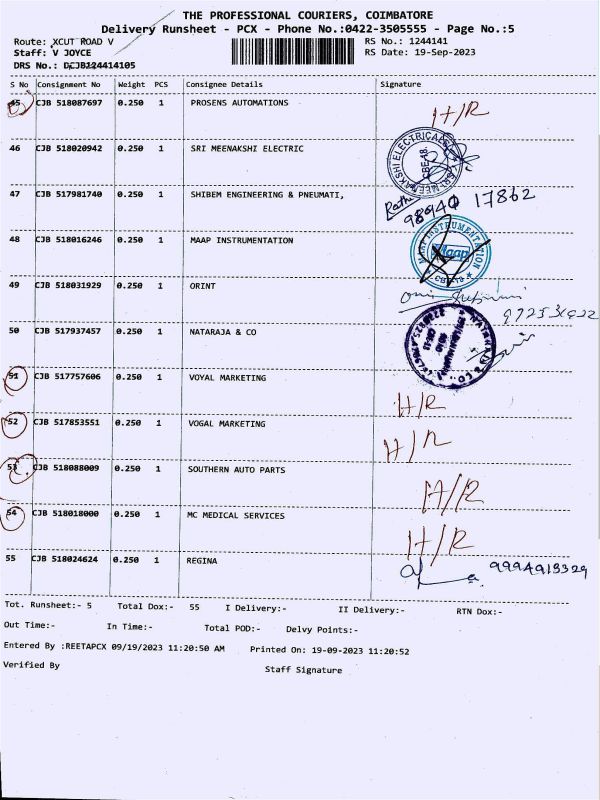 THE PROFESSIONAL COURIERS, COIMBATORE
Delivery Runsheet - PCX - Phone No.:0422-3505555 - Page No.:5
Route: XCUT ROAD V RS No.: 1244141
Staff: V JOYCE RS Date: 19-Sep-2023
DRS No.: DCJB124414105
S No Consignment No Weight PCS Consignee Details Signature
45 CJB 518087697 0.250 1 PROSENS AUTOMATIONS H/R
46 CJB 518020942 0.250 1 SRI MEENAKSHI ELECTRIC
47 CJB 517981740 0.250 1 SHIBEM ENGINEERING & PNEUMATI, 98940 17862
48 CJB 518016246 0.250 1 MAAP INSTRUMENTATION MAAP INSTRUMENTATION Maap
49 CJB 518031929 0.250 1 ORINT
50 CJB 517937457 0.250 1 NATARAJA & CO
51 CJB 517757606 0.250 1 VOYAL MARKETING H/R
52 CJB 517853551 0.250 1 VOGAL MARKETING H/R
53 CJB 518088009 0.250 1 SOUTHERN AUTO PARTS H/R
54 CJB 518018000 0.250 1 MC MEDICAL SERVICES H/R
55 CJB 518024624 0.250 1 REGINA 9994919329
Tot. Runsheet:- 5 Total Dox:- 55 I Delivery:- II Delivery:- RTN Dox:-
Out Time:- In Time:- Total POD:- Delvy Points:-
Entered By :REETAPCX 09/19/2023 11:20:50 AM Printed On: 19-09-2023 11:20:52
Verified By Staff Signature